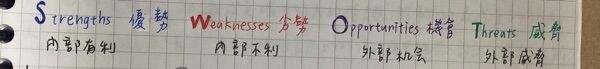 Strengths 優勢 Weaknesses 劣勢 Opportunities 機會 Threats 威脅
內部有利 內部不利 外部机会 外部威脅